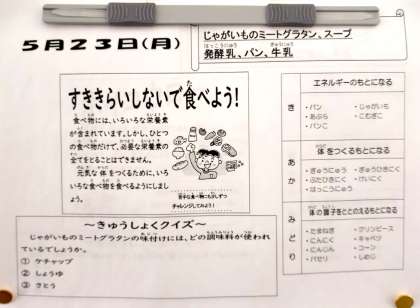 5月23日(月)
じゃがいものミートグラタン、スープ
発酵乳、パン、牛乳
すききらいしないで食べよう!
食べ物には、いろいろな栄養素
が含まれています。しかし、ひとつ
の食べ物だけで、必要な栄養素の
全てをとることはできません。
元気な体をつくるために、いろ
いろな食べ物を食べるようにしまし
ょう。
苦手な食べ物にも少しずつ
チャレンジしてみよう!
~きゅうしょくクイズ~
じゃがいものミートグラタンの味付けには、どの調味料が使われ
ているでしょうか。
① ケチャップ
② しょうゆ
③ さとう
エネルギーのもとになる
き
・パン ・じゃがいも
・あぶら ・こむぎこ
・パンこ
体をつくるもとになる
あか
・ぎゅうにゅう ・ぎゅうひきにく
・ぶたひきにく ・けいにく
・はっこうにゅう
体の調子をととのえるもとになる
みどり
・たまねぎ ・グリンピース
・にんにく ・キャベツ
・にんじん ・コーン
・パセリ ・しめじ